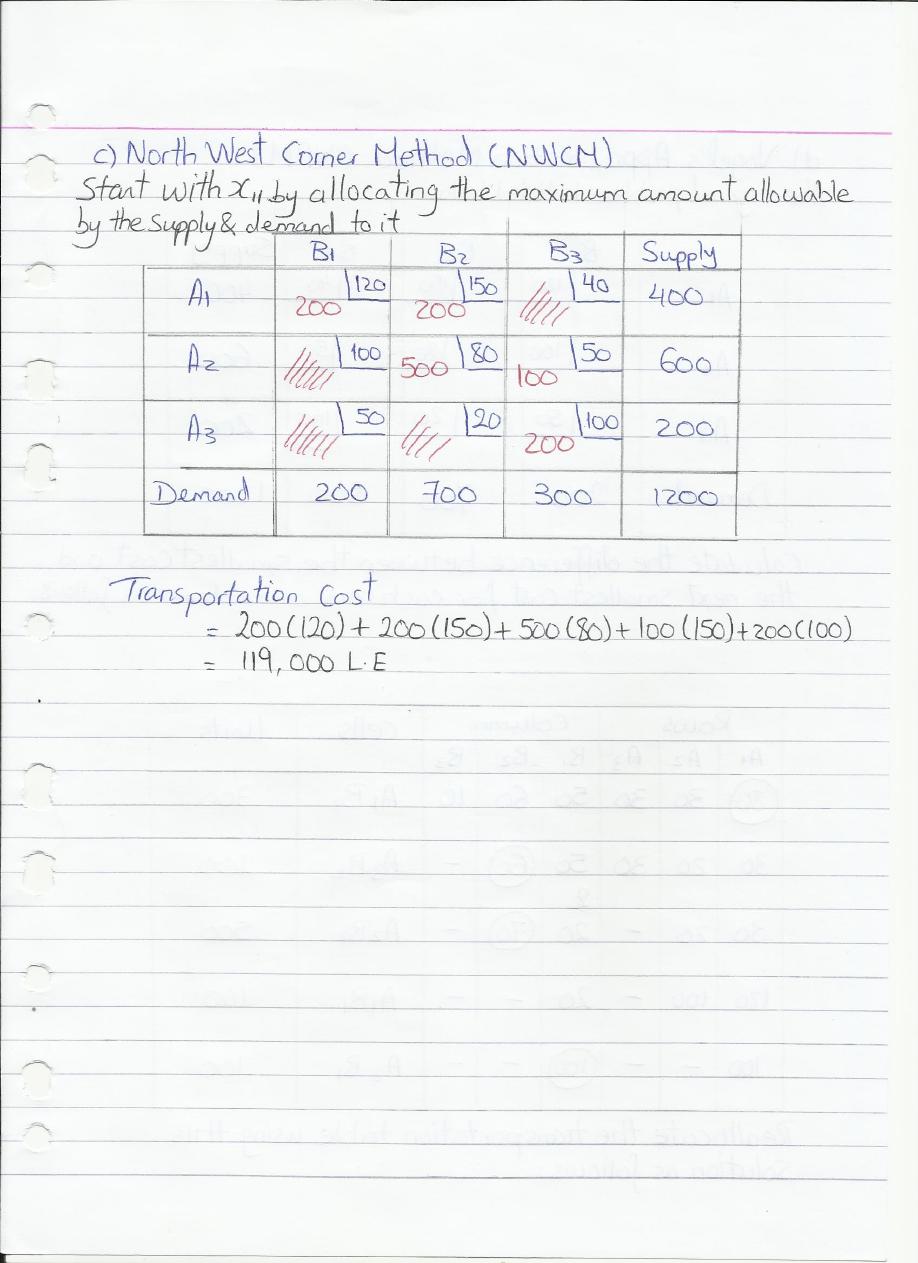 c) North West Corner Method (NWCM)
Start with x₁₁, by allocating the maximum amount allowable
by the supply & demand to it
B1 B2 B3 Supply
A1 200 120 200 150 40 400
A2 100 500 80 100 50 600
A3 50 20 200 100 200
Demand 200 700 300 1200
Transportation Cost
= 200(120) + 200(150) + 500(80) + 100(150) + 200(100)
= 119,000 L.E